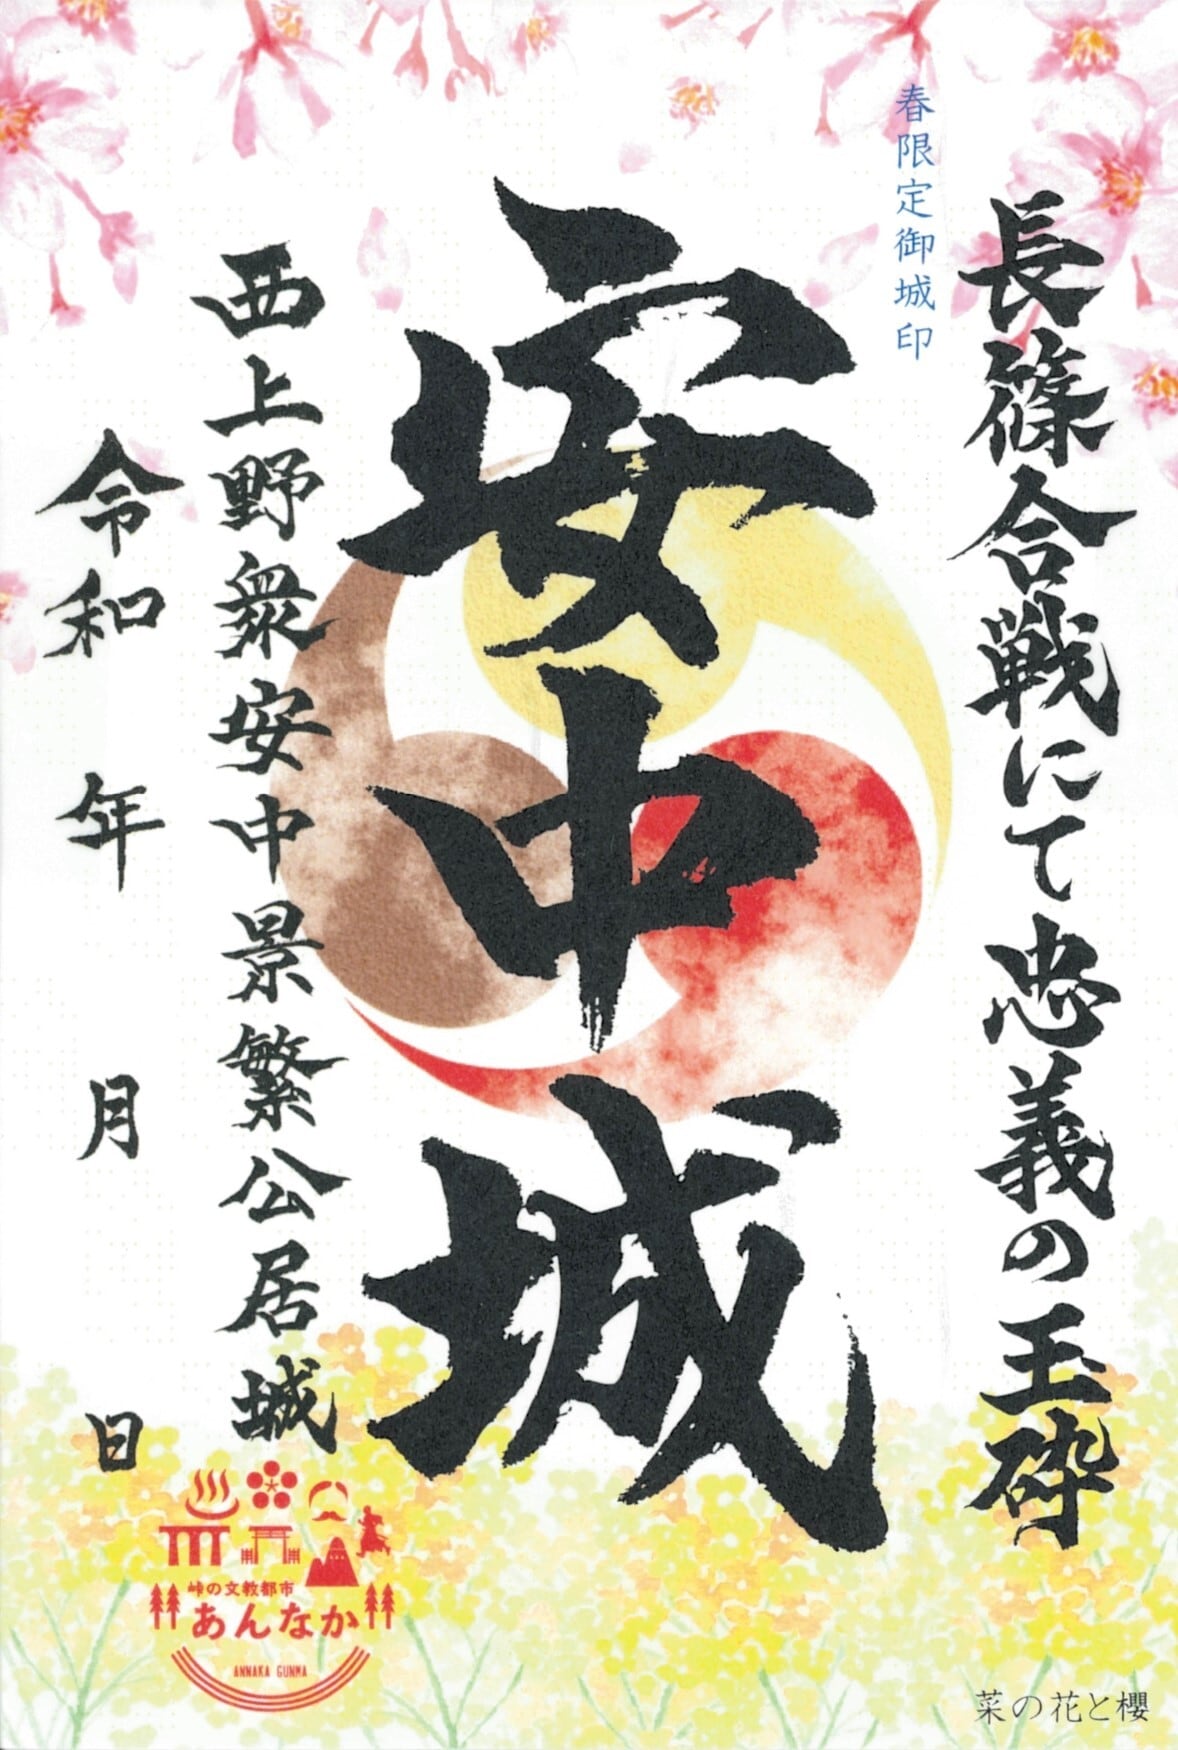 春限定御城印
長篠合戦にて忠義の玉砕
安中城
西上野衆安中景繁公居城
令和 年 月 日
峠の文教都市
あんなか
ANNAKA GUNMA
菜の花と櫻